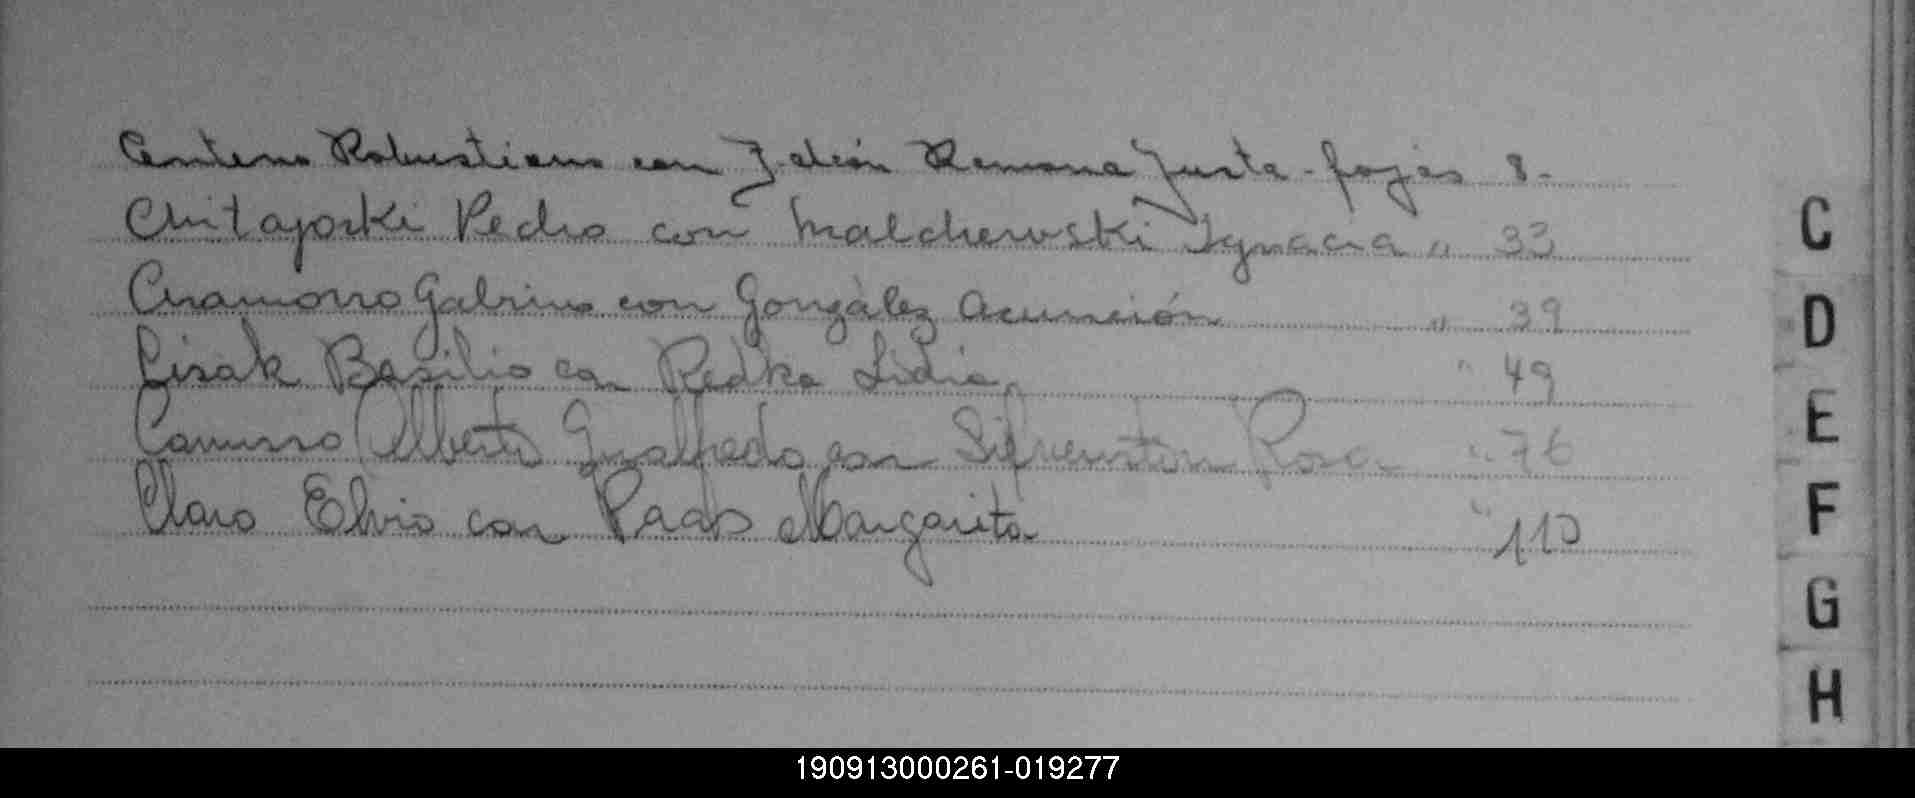 Centeno Robustiano con Ramona Justa - fojas 8 -
Pedro con Malchewski Ignacia " 33
Gabino con González Acunción " 39
Lisak Basilio con Redka Lidia " 49
Alberto Gualfredo con Rosa " 76
Claro Elvio con Prado Margarita " 110
C
D
E
F
G
H
190913000261-019277